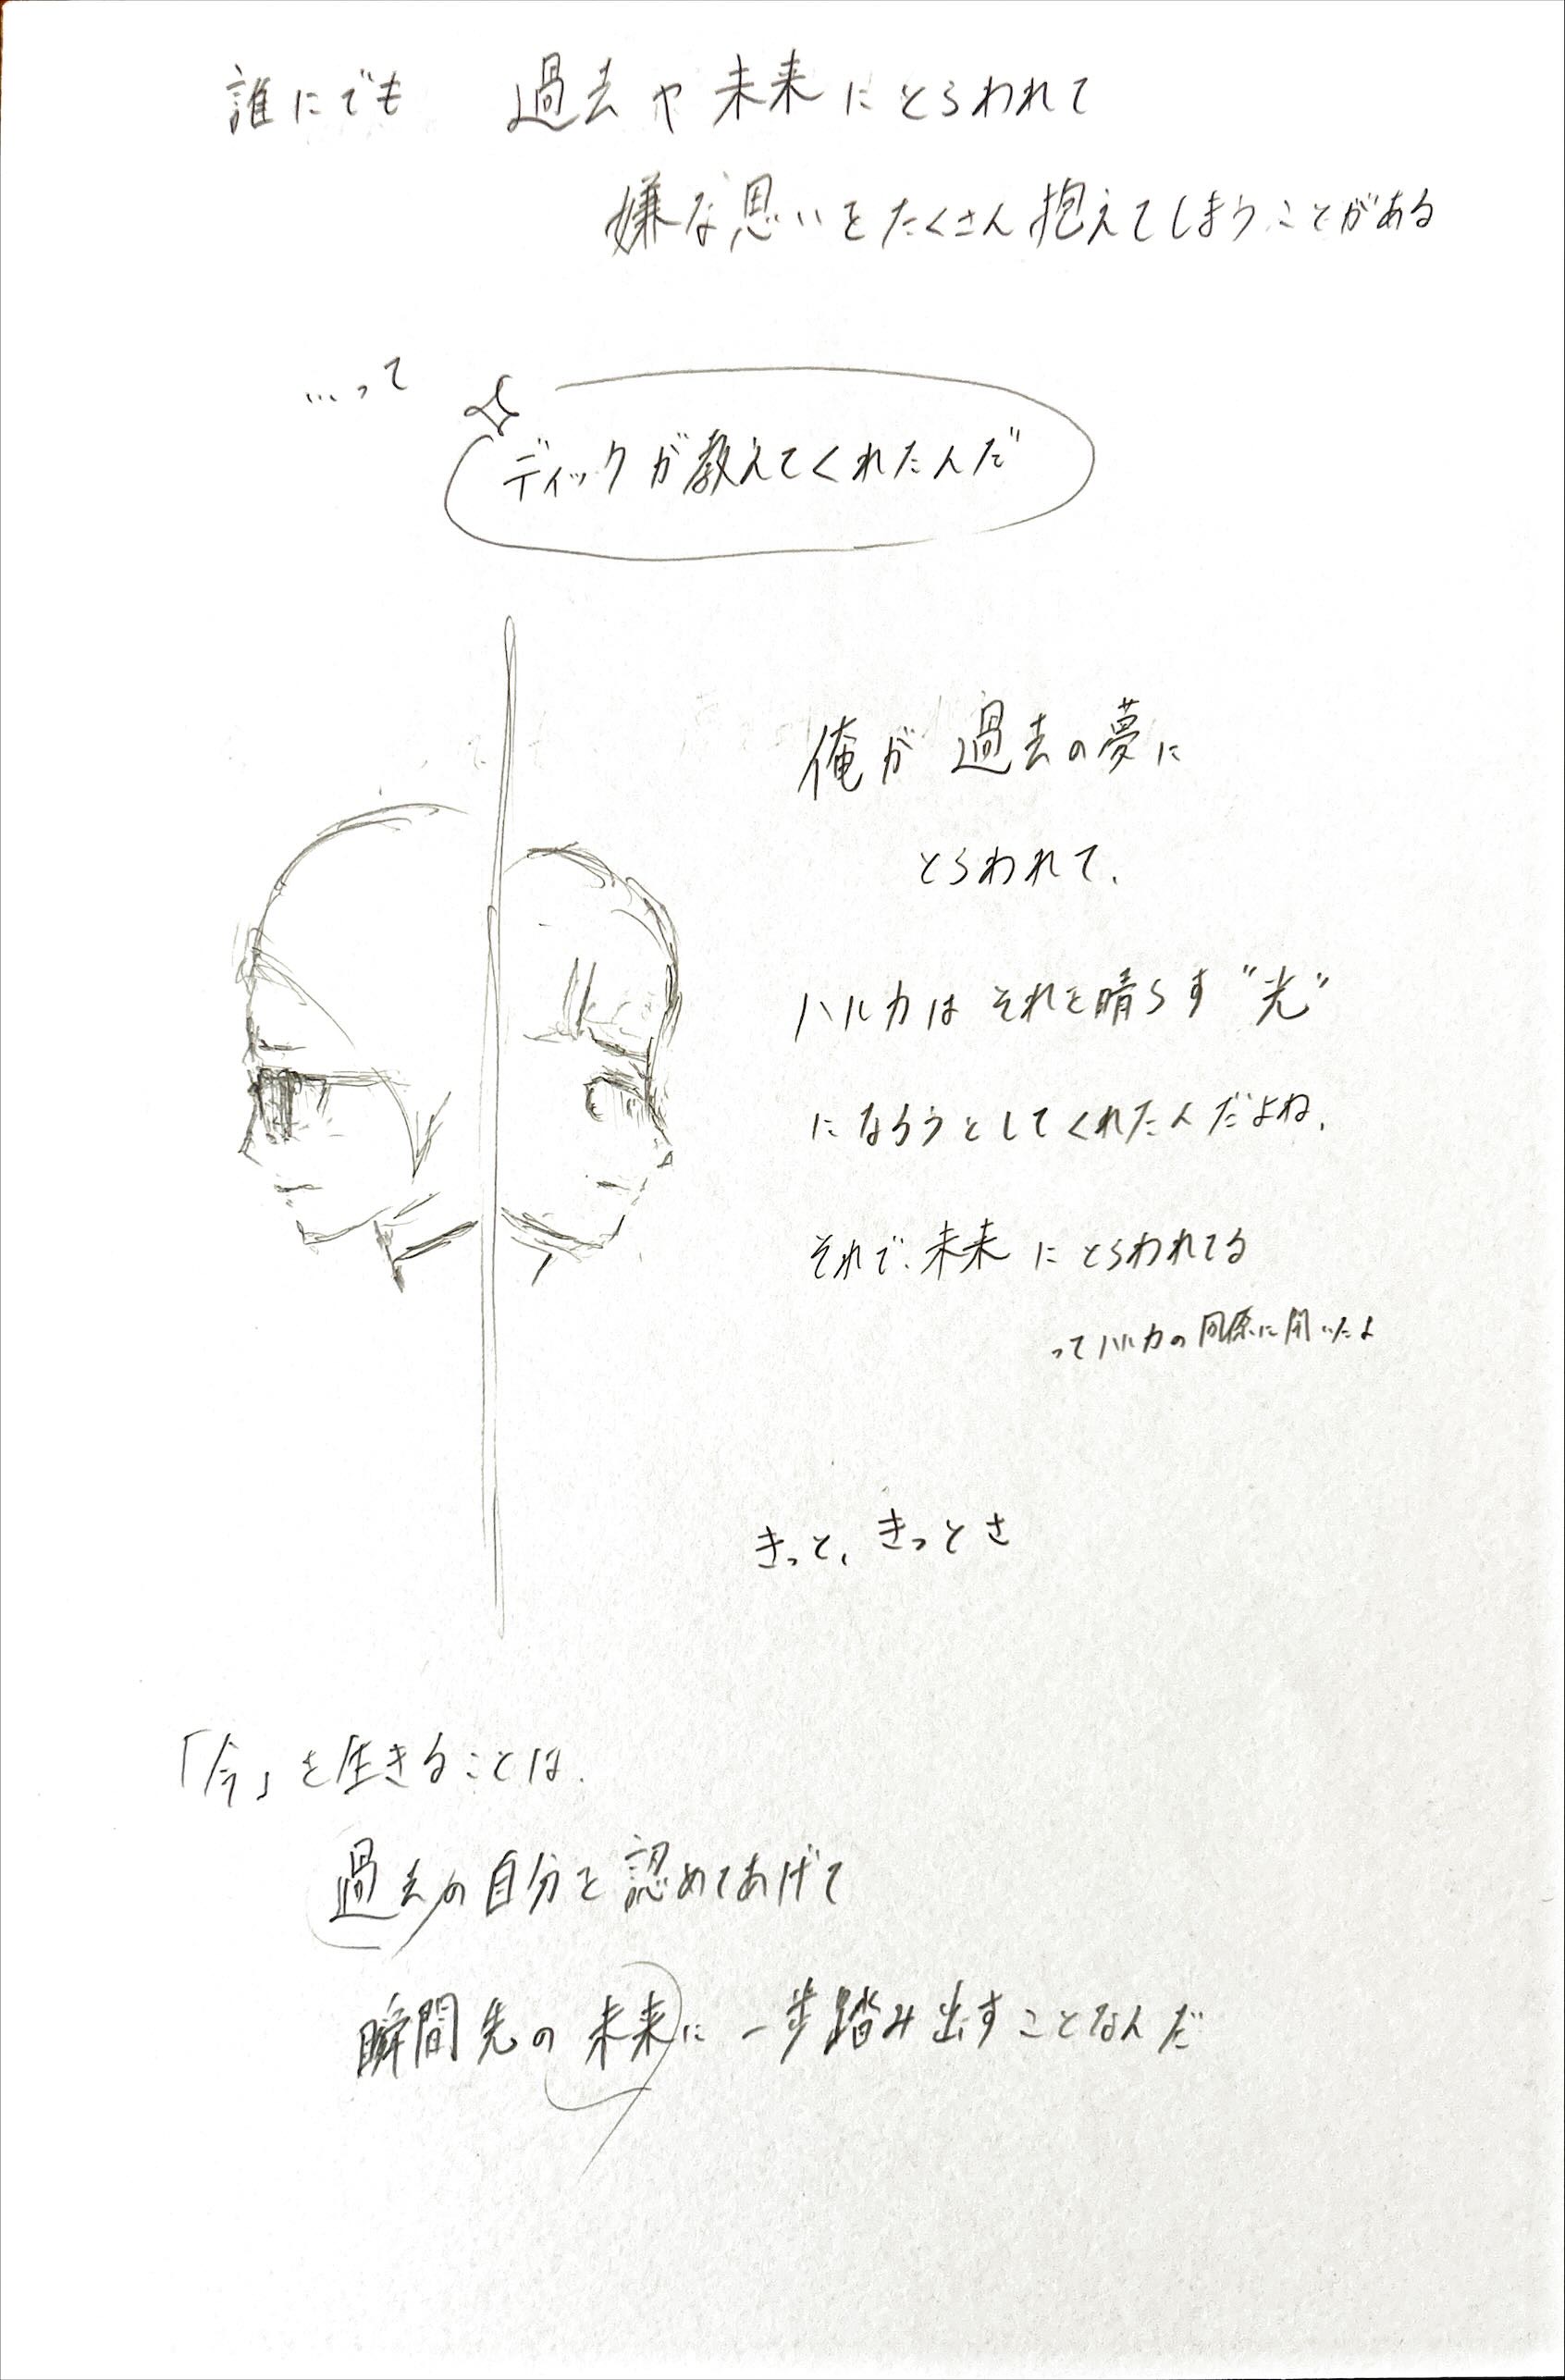 誰にでも 過去や未来にとらわれて
嫌な思いをたくさん抱えてしまうことがある
…って
ディックが教えてくれたんだ
俺が過去の夢に
とらわれて、
ハルカはそれを晴らす"光"
になろうとしてくれたんだよね、
それで、未来にとらわれてる
ってハルカの同僚に聞いたよ
きっと、きっとさ
「今」を生きることは、
過去の自分を認めてあげて
瞬間先の未来に一歩踏み出すことなんだ